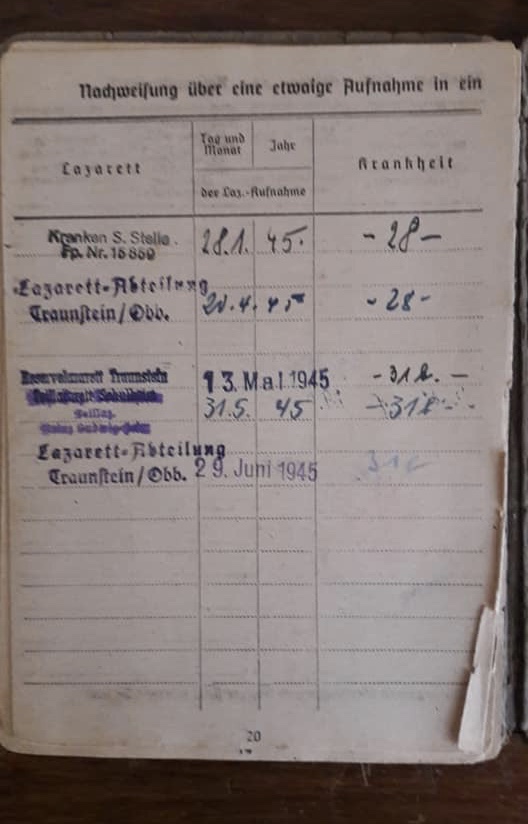 Nachweisung über eine etwaige Aufnahme in ein
Lazarett
Tag und Monat
Jahr
der Laz.-Aufnahme
Krankheit
Kranken S. Stelle.
Fp. Nr. 15859
28.1. 45. -28-
Lazarett-Abteilung
Traunstein/Obb.
20.4. 45 -28-
Reservelazarett Traunstein
13. Mai 1945 -31e.-
31.5. 45
Lazarett-Abteilung
Traunstein/Obb. 29. Juni 1945
20